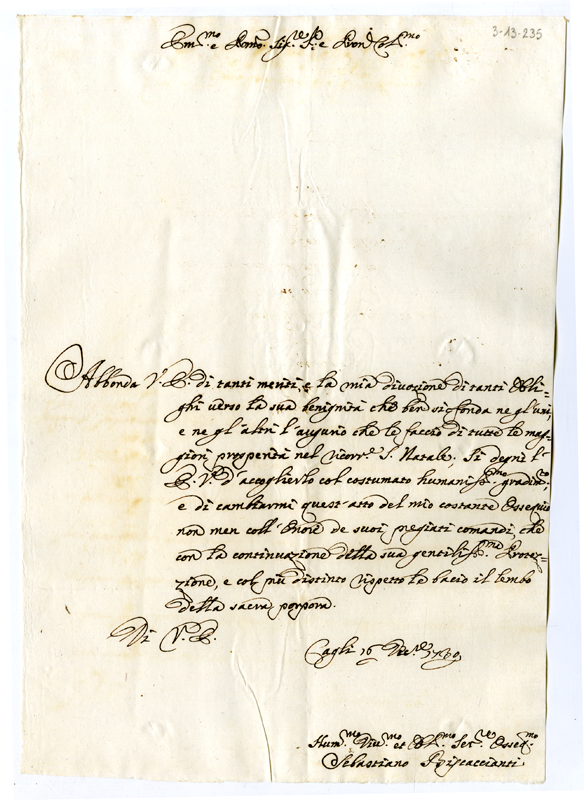 3-13-235
Em.mo e Rmo. Sig.re P.e e Pron. Col.mo
Abbonda V. E. di tanti meriti, e la mia divozione di tanti Obli=
ghi verso la sua benignità che ben si fonda ne gl'uni,
e ne gl'altri l'augurio che le faccio di tutte le mag=
giori prosperità nel Vien.te S. Natale. Si degni l'
E. V. d'accoglierlo col costumato humaniss.mo gradim.to,
e di cambiarmi quest'atto del mio costante Ossequio
non men coll'Onore de suoi pregiati comandi, che
con la continuazione della sua gentiliss.ma Prote=
zione, e col più distinto rispetto le bacio il lembo
della sacra porpora.
Di V. E.
Cagli 16 Xbre
Hum.mo Div.mo et Obl.mo Ser.re Osseq.mo
Sebastiano